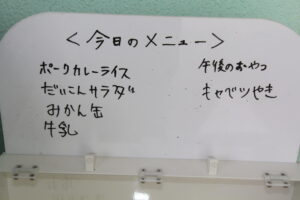 <今日のメニュー>
ポークカレーライス
だいこんサラダ
みかん缶
牛乳
午後のおやつ
キャベツやき